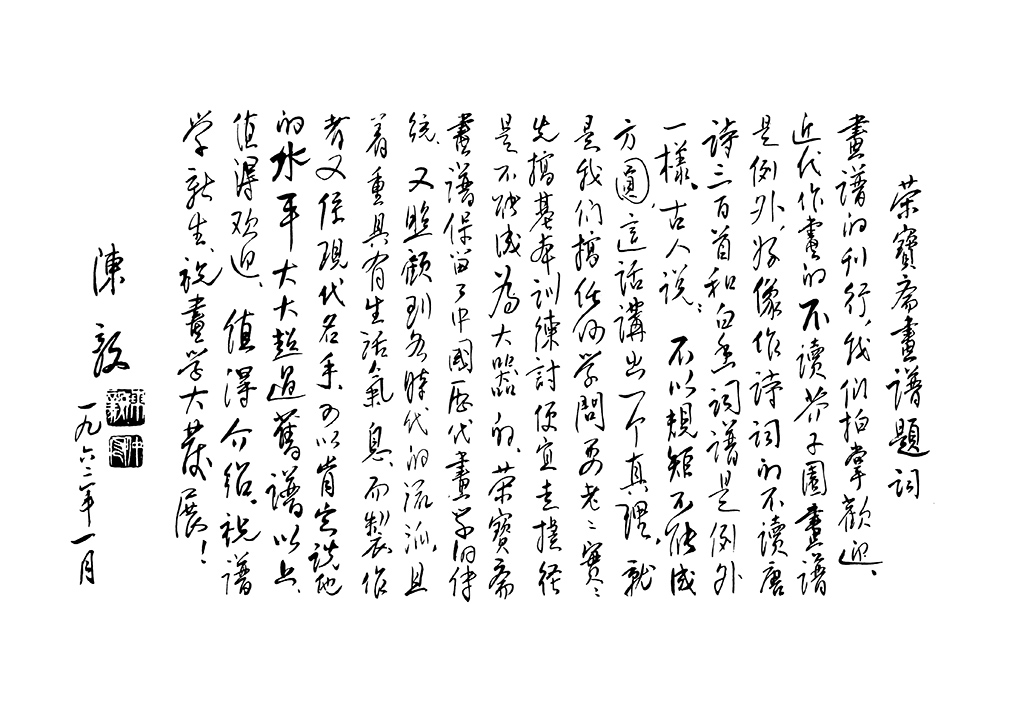 荣寶斋畫譜題词
畫譜的刊行，我们拍掌歡迎，
近代作畫的不讀芥子園畫譜
是例外，好像作詩词的不讀唐
詩三百首和白香词譜是例外
一樣，古人说：不以規矩不能成
方圓，這话講出一个真理，就
是我们搞任何学問要老老實實，
先搞基本训練，討便宜走捷径
是不能成为大器的。荣寶斋
畫譜保留了中國历代畫学的传
统，又照顧到各時代的流派，且
着重具有生活氣息，而製作
者又係現代名手，可以肯定说他
的水平大大超過舊譜以上，
值得欢迎，值得介绍。祝譜
学新生，祝畫学大发展！
陳毅
一九六二年一月